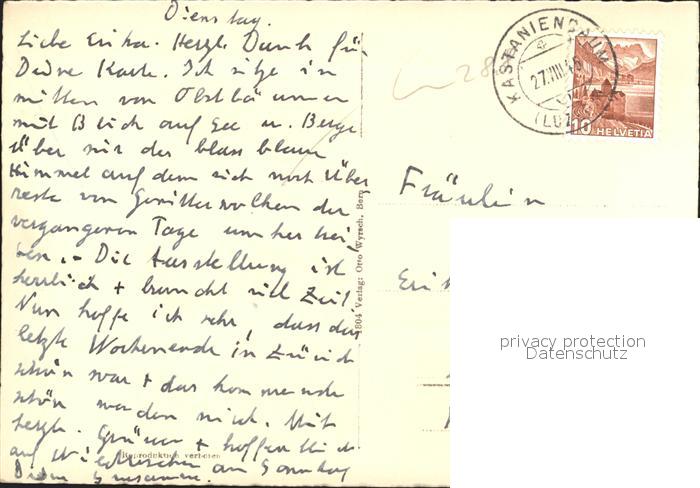 Dienstag.
Liebe Erika. Herzl. Dank für
Deine Karte. Ich sitze in
mitten von Obstbäumen
mit Blick auf See u. Berge
Über mir der blass blaue
Himmel auf dem sich noch Über
reste von Gewitterwolken der
vergangenen Tage umher trei,
ben. - Die Ausstellung ist
herrlich + braucht viel Zeit
Nun hoffe ich sehr, dass das
letzte Wochenende in Zürich
schön war + das kommende
schön werden wird. Mit
herzl. Grüssen + hoffentlich
auf Wiedersehen am Sonntag
Deine
Fräulein
Eri
KASTANIENBAUM
27.VIII.
(LUZ
10 HELVETIA
28
804 Verlag: Otto Wyrsch, Bern
Reproduktion verboten
privacy protection
Datenschutz